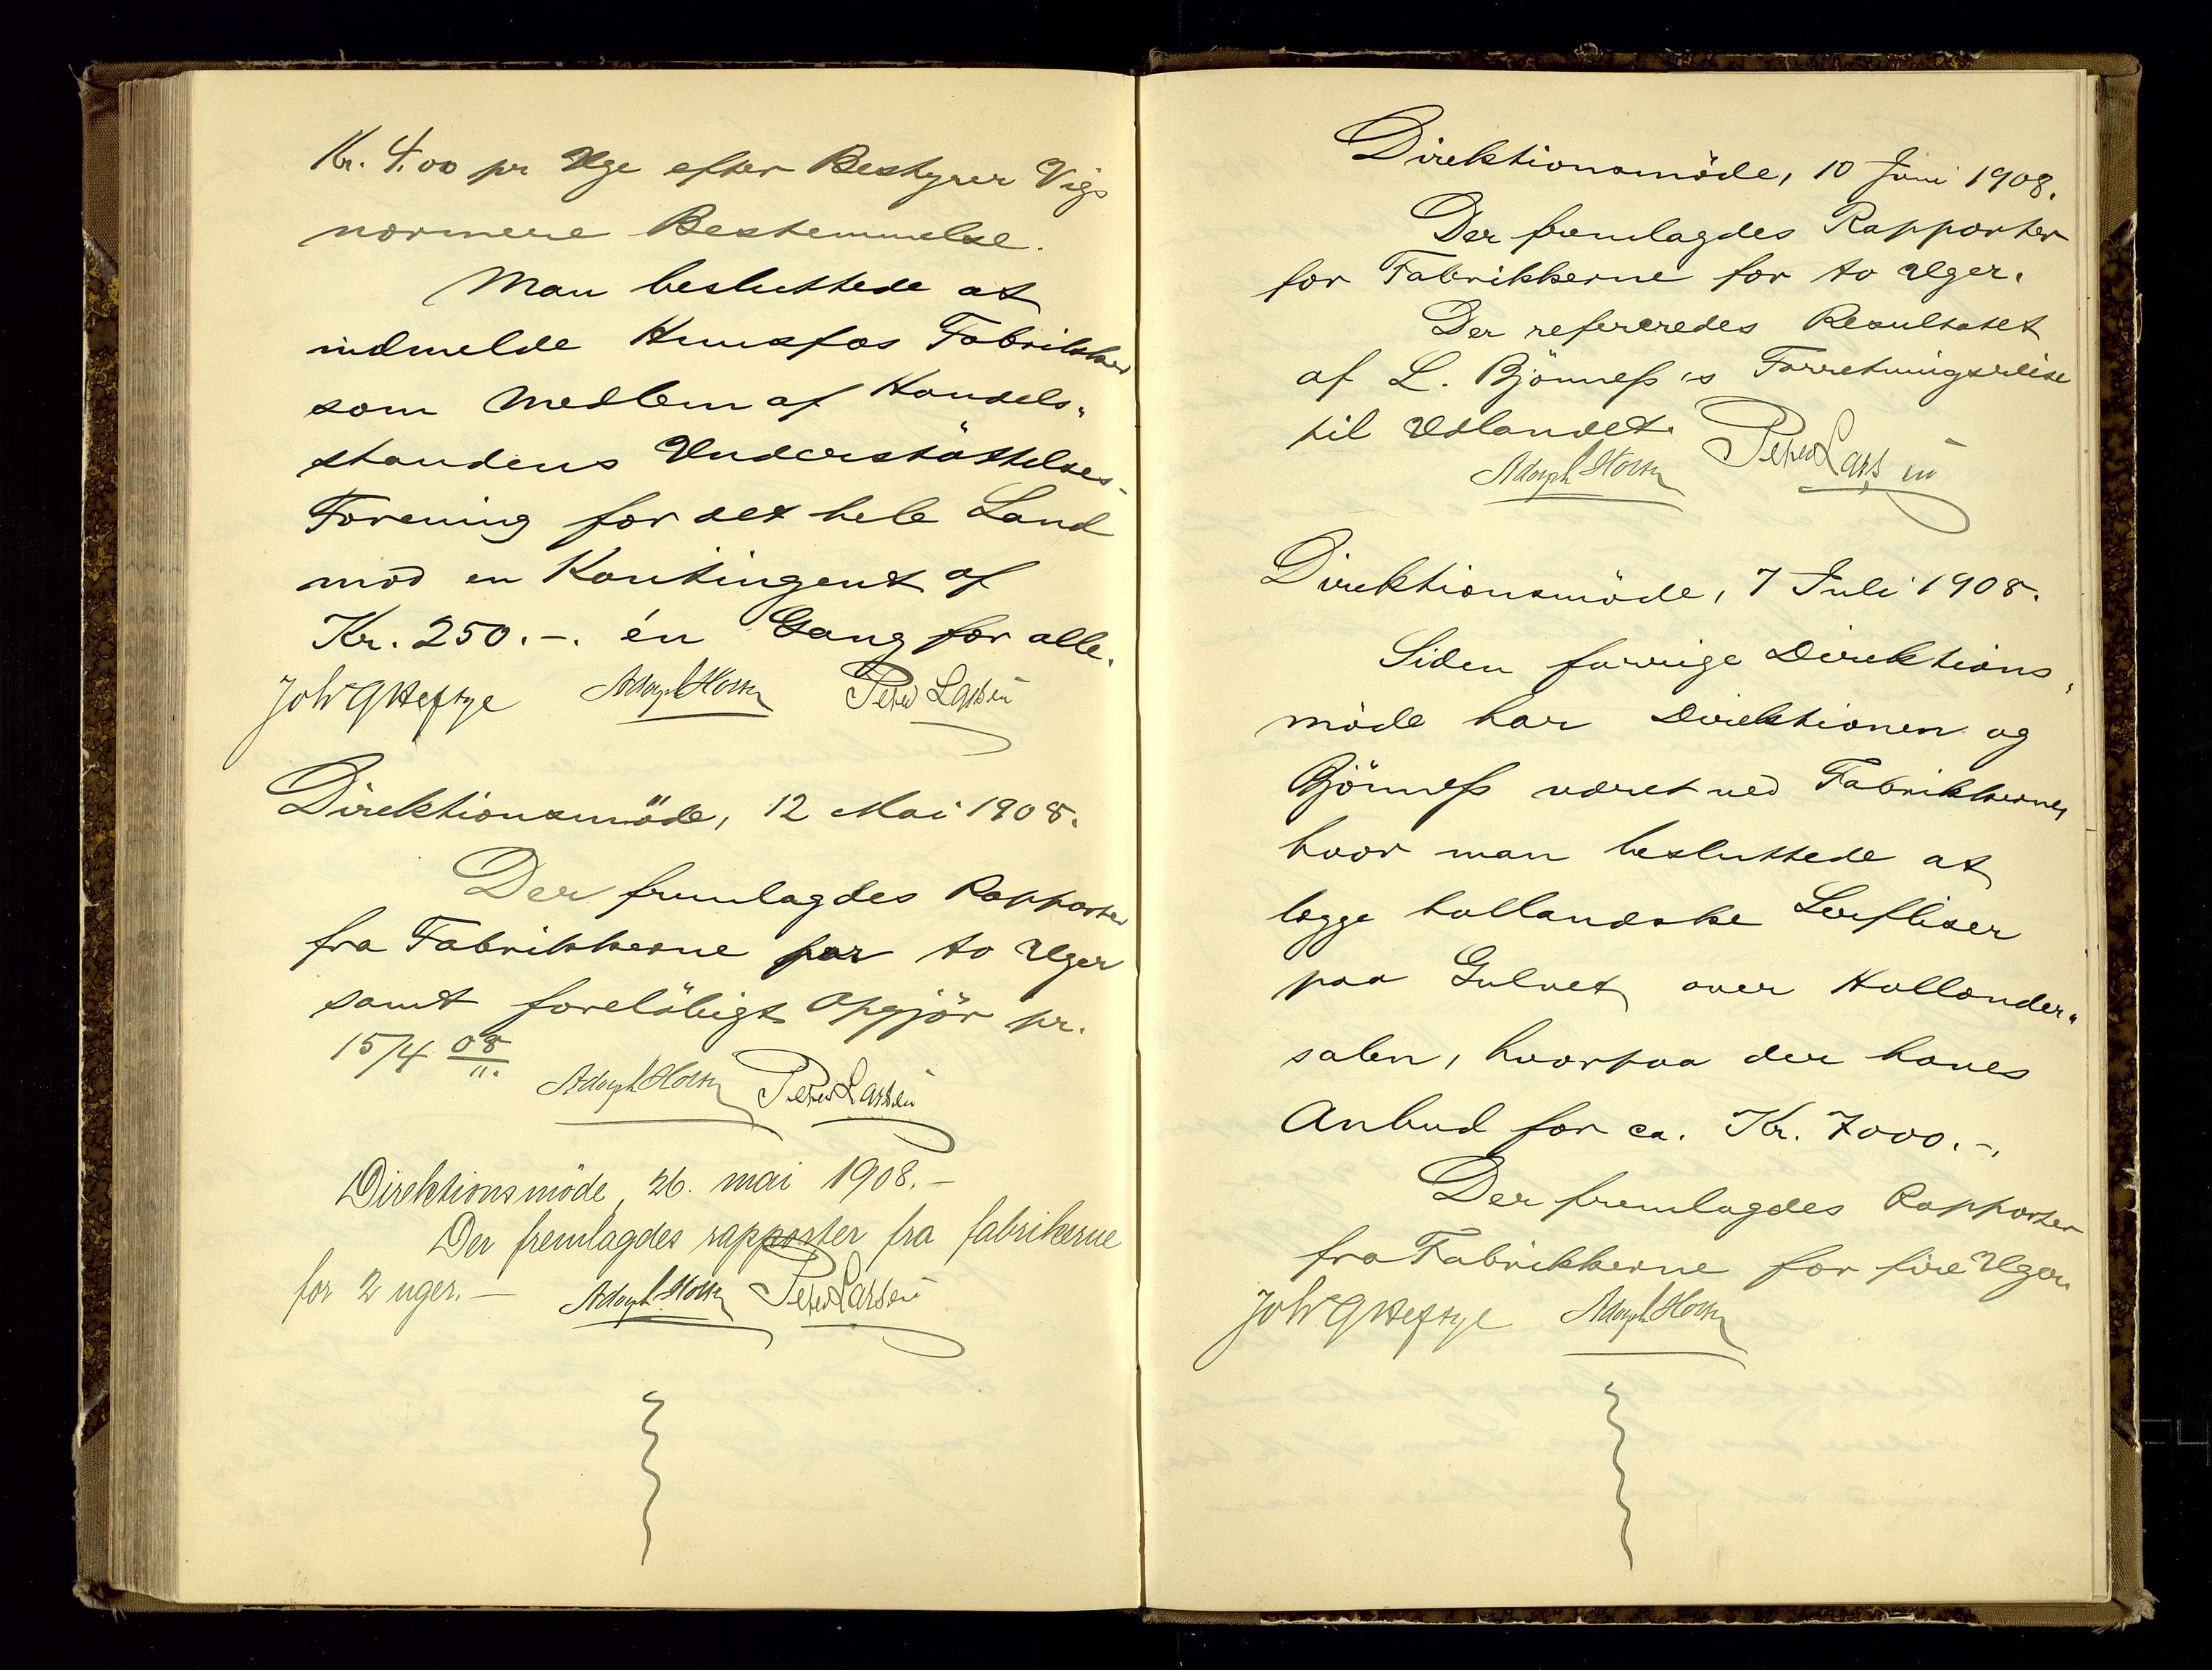 Kr. 4.00 pr Uge efter Bestyrer Vigs
nærmere Bestemmelse.
Man besluttede at
indmelde Hunsfos Fabrikker
som Medlem af Handels-
standens Understöttelses-
Forening for det hele Land
mod en Kontingent af
Kr. 250.-. én Gang for alle.
Joh G Heftye Adolph Holm Peter Larsen
Direktionsmöde, 12 Mai 1908.
Der fremlagdes Rapporter
fra Fabrikkerne for to Uger
samt foreløbigt Opgjör pr.
15/4 08
Adolph Holm Peter Larsen
Direktionsmöde, 26. mai 1908.-
Der fremlagdes rapporter fra fabrikerne
for 2 uger.- Adolph Holm Peter Larsen
Direktionsmöde, 10 Juni 1908.
Der fremlagdes Rapporter
for Fabrikkerne for to Uger.
Der refereredes Resultatet
af L. Björneß's Forretningsreise
til Udlandet.
Adolph Holm Peter Larsen
Direktionsmöde, 7 Juli 1908.
Siden forrige Direktions-
möde har Direktionen og
Björneß været ved Fabrikkerne,
hvor man besluttede at
lægge hollandske Lerfliser
paa Gulvet over Hollænder-
salen, hvorpaa der haves
Anbud for ca. Kr. 7000.-.
Der fremlagdes Rapporter
fra Fabrikkerne for fire Uger.
Joh G Heftye Adolph Holm